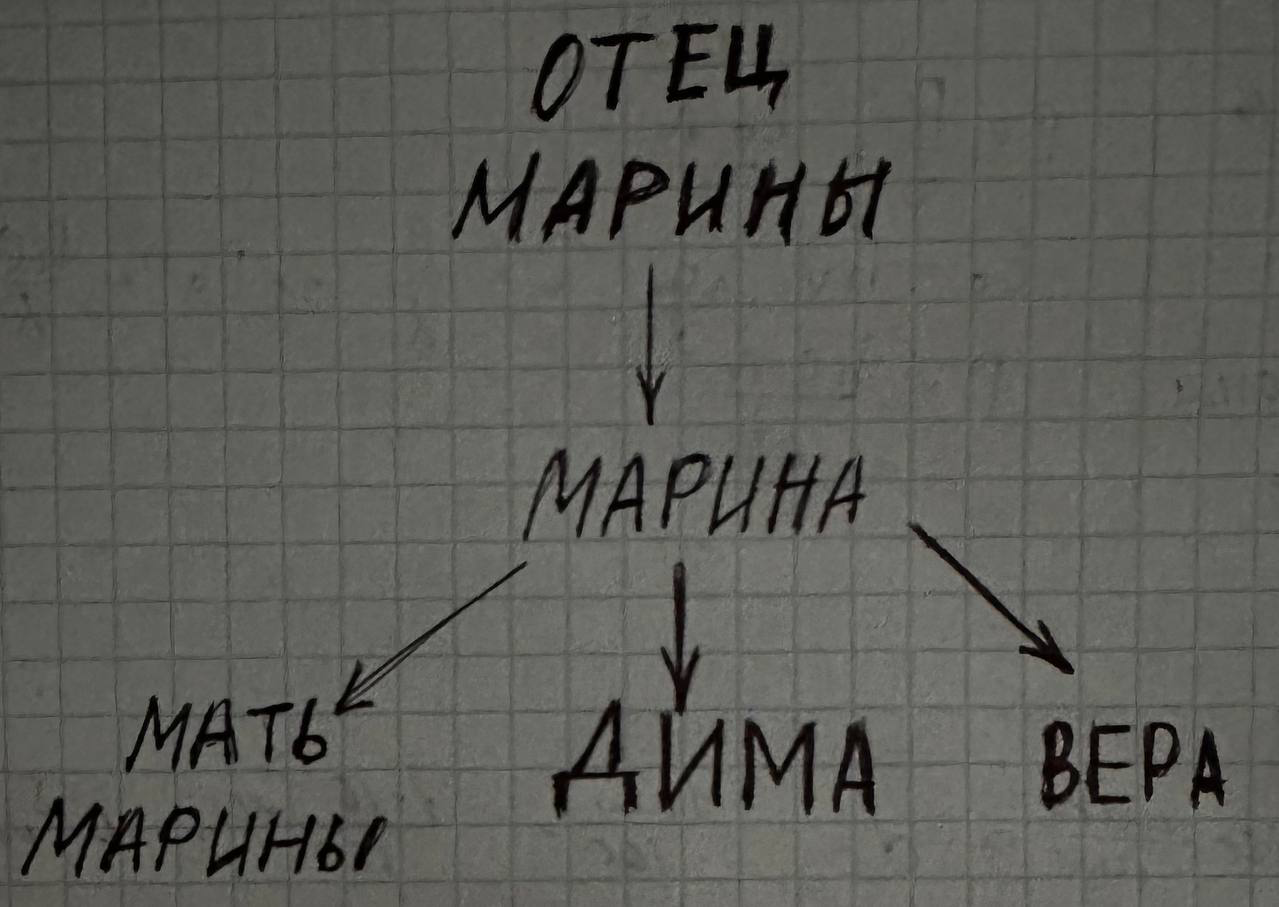 ОТЕЦ
МАРИНЫ
МАРИНА
МАТЬ
МАРИНЫ
ДИМА
ВЕРА